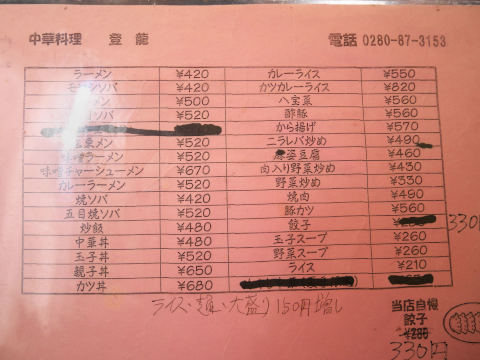 中華料理 登龍 電話 0280-87-3153
ラーメン ¥420 カレーライス ¥550
¥420 カツカレーライス ¥820
¥500 八宝菜 ¥560
¥520 酢豚 ¥560
から揚げ ¥570
¥520 ニラレバ炒め ¥490
ラーメン ¥520 麻婆豆腐 ¥460
味噌チャーシューメン ¥670 肉入り野菜炒め ¥430
カレーラーメン ¥520 野菜炒め ¥330
焼ソバ ¥420 焼肉 ¥490
五目焼ソバ ¥520 豚カツ ¥560
炒飯 ¥480 餃子 330円
中華丼 ¥480 玉子スープ ¥260
玉子丼 ¥520 野菜スープ ¥260
親子丼 ¥650 ライス ¥210
カツ丼 ¥680
ライス・麺・大盛り150円増し
当店自慢
餃子
¥280
330円